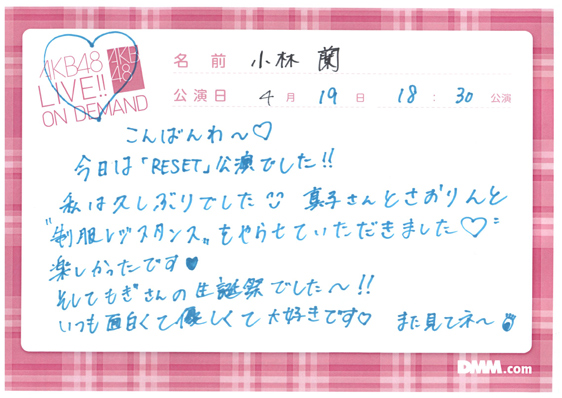 AKB48
LIVE!!
ON DEMAND
AKB
48
名前 小林 蘭
公演日 4月 19日 18:30 公演
こんばんわ〜♡
今日は「RESET」公演でした!!
私は久しぶりでした 真子さんとさおりんと
"制服レジスタンス"をやらせていただきました♡
楽しかったです♥
そしてもぎさんの生誕祭でした〜!!
いつも面白くて優しくて大好きです♡ また見てネ〜
DMM.com